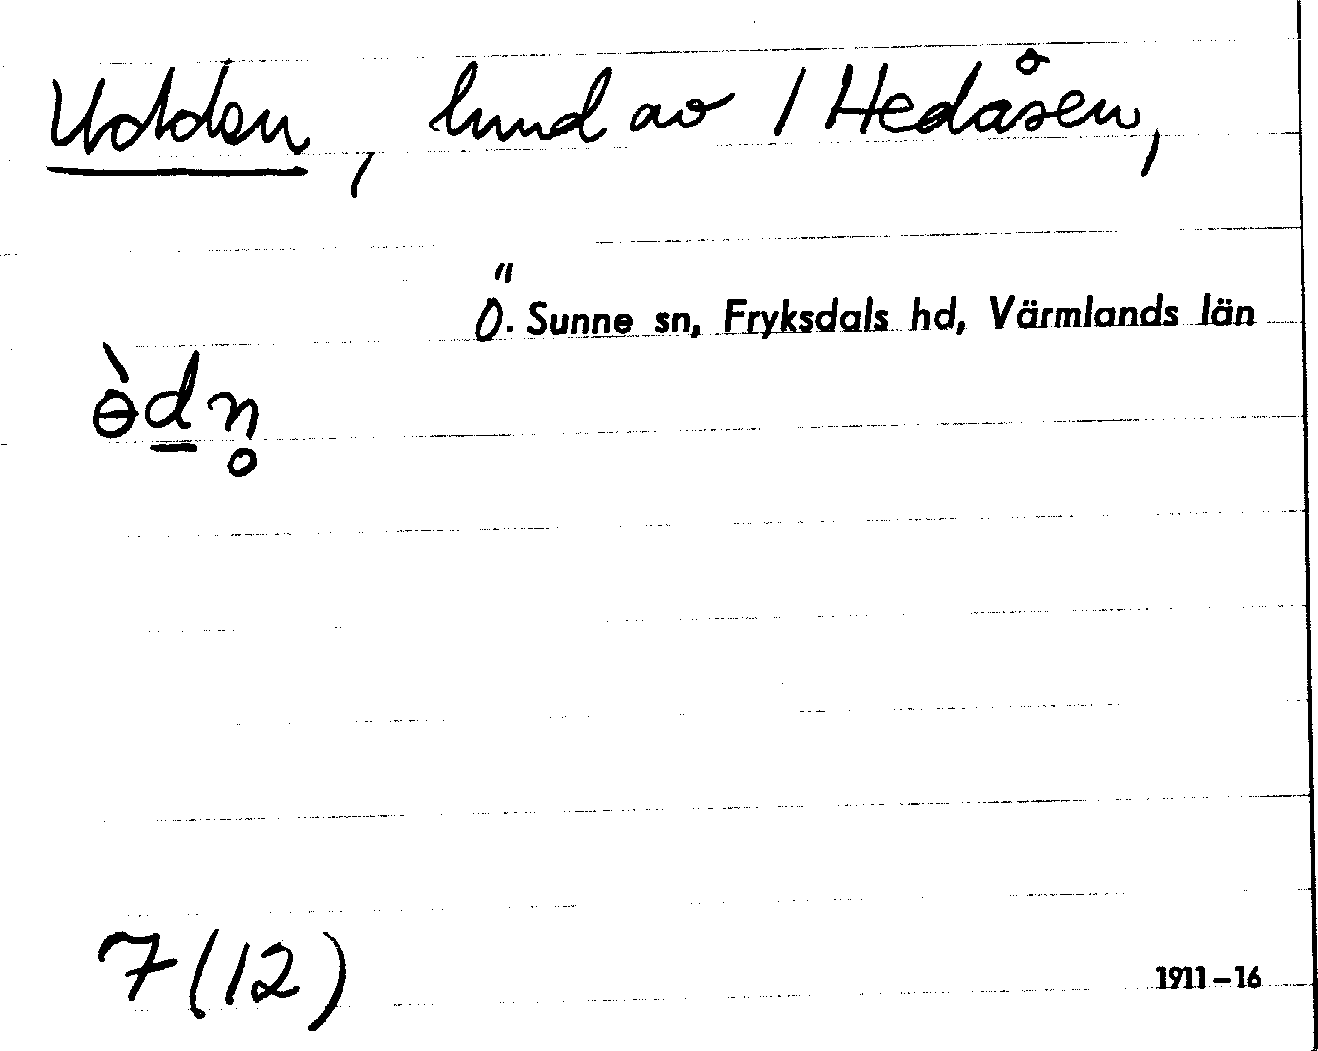 Udden, lund av 1 Hedåsen,
Ö. Sunne sn, Fryksdals hd, Värmlands län
ɵ̀d̲n̥
7(12)
1911–16